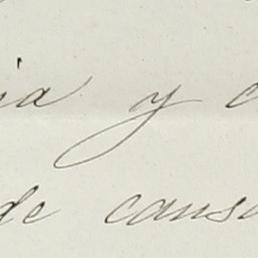 ia y c
de causa